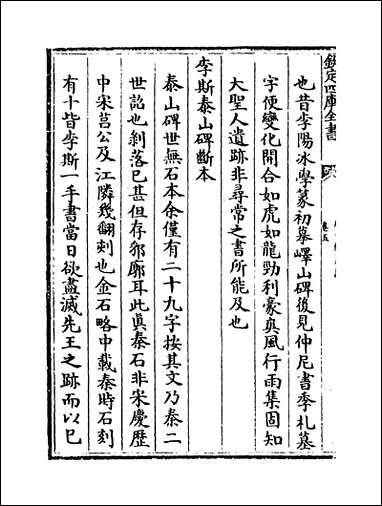 欽定四庫全書
卷五
也昔李陽冰學篆初摹嶧山碑後見仲尼書季札墓
字便變化開合如虎如龍勁利豪爽風行雨集固知
大聖人遺跡非尋常之書所能及也
李斯泰山碑斷本
泰山碑世無石本余僅有二十九字按其文乃秦二
世詔也剥落已甚但存郛廓耳此真秦石非宋慶歴
中宋莒公及江隣幾翻刻也金石略中載秦時石刻
有十皆李斯一手書當日欲盡滅先王之跡而以已